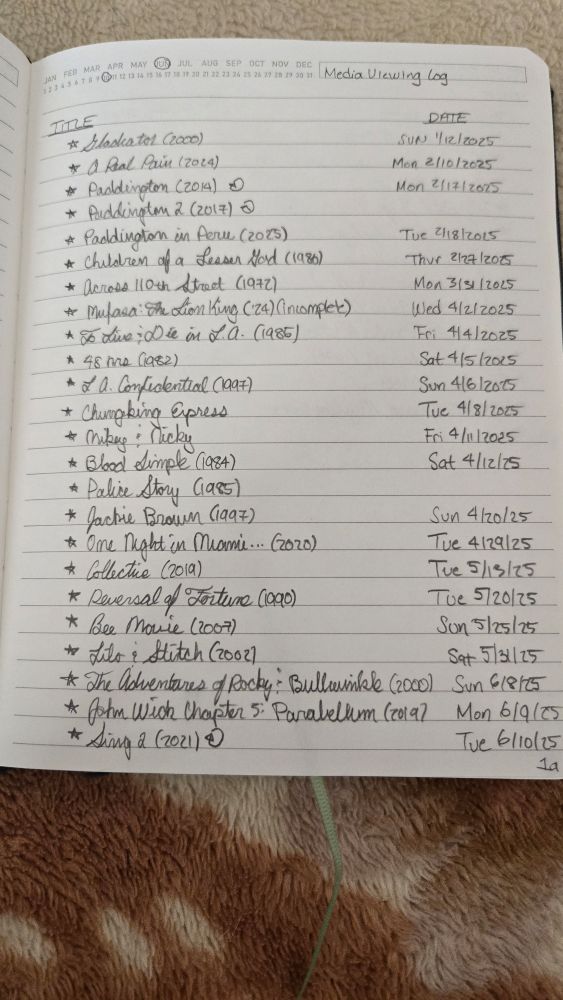 JAN FEB MAR APR MAY JUN JUL AUG SEP OCT NOV DEC
1 2 3 4 5 6 7 8 9 10 11 12 13 14 15 16 17 18 19 20 21 22 23 24 25 26 27 28 29 30 31 Media Viewing Log
TITLE DATE
★ Gladiator (2000) SUN 1/12/2025
★ A Real Pain (2024) Mon 2/10/2025
★ Paddington (2014) Mon 2/17/2025
★ Paddington 2 (2017)
★ Paddington in Peru (2025) Tue 2/18/2025
★ Children of a Lesser God (1986) Thur 2/27/2025
★ Across 110th Street (1972) Mon 3/31/2025
★ Mufasa: The Lion King ('24) (incomplete) Wed 4/2/2025
★ To Live & Die in L.A. (1985) Fri 4/4/2025
★ 48 Hrs (1982) Sat 4/5/2025
★ L.A. Confidential (1997) Sun 4/6/2025
★ Chungking Express Tue 4/8/2025
★ Mikey & Nicky Fri 4/11/2025
★ Blood Simple (1984) Sat 4/12/25
★ Police Story (1985)
★ Jackie Brown (1997) Sun 4/20/25
★ One Night in Miami... (2020) Tue 4/29/25
★ Collective (2019) Tue 5/13/25
★ Reversal of Fortune (1990) Tue 5/20/25
★ Bee Movie (2007) Sun 5/25/25
★ Lilo & Stitch (2002) Sat 5/31/25
★ The Adventures of Rocky & Bullwinkle (2000) Sun 6/8/25
★ John Wick Chapter 3: Parabellum (2019) Mon 6/9/25
★ Sing 2 (2021) Tue 6/10/25
1a